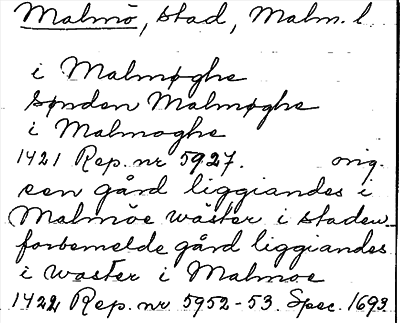 Malmö, stad, Malm. l
i Malmøghe
Sønden Malmøghe
i Malmoghe
1421 Rep. nr 5927. orig.
een gård liggiandes i
Malmöe wäster i staden
forbemelde gård liggiandes
i waster i Malmoe
1422 Rep. nr 5952-53. Spec. 1693